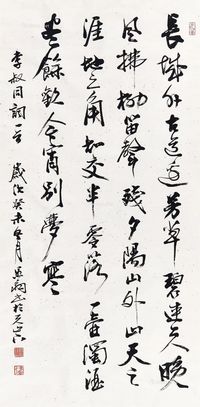 長城外古道邊芳草碧連天晚
風拂柳笛聲殘夕陽山外山天之
涯地之角知交半零落一壺濁酒
盡餘歡今宵別夢寒
李叔同詞一首 歲次癸未冬月